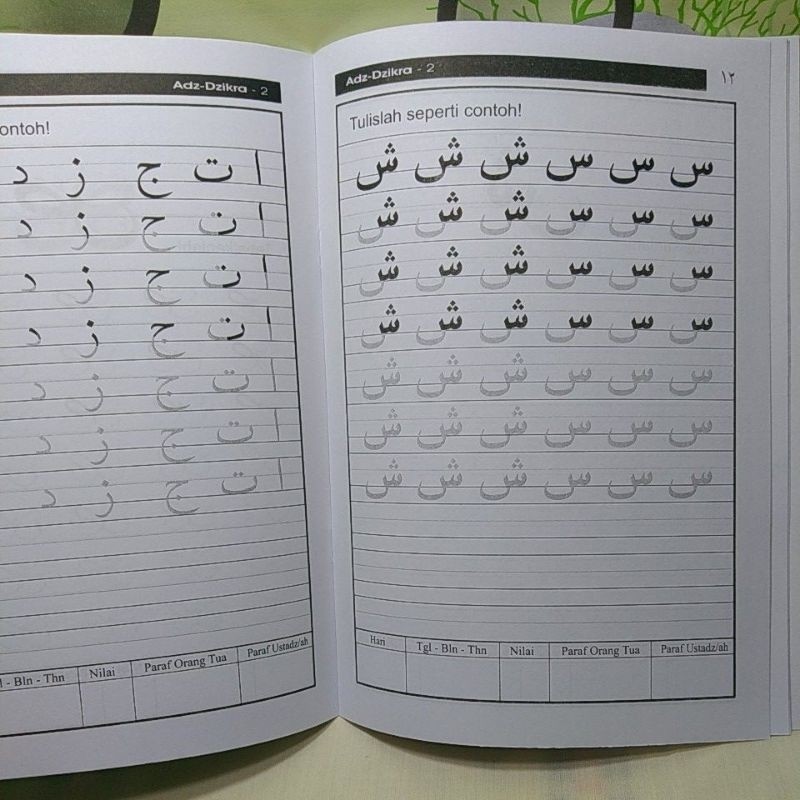 Adz-Dzikra - 2
ontoh!
ا ت ج ز د
ا ت ج ز د
ا ت ج ز د
ا ت ج ز د
ا ت ج ز د
ا ت ج ز د
ا ت ج ز د
l - Bln - Thn Nilai Paraf Orang Tua Paraf Ustadz/ah
Adz-Dzikra - 2 ١٢
Tulislah seperti contoh!
س س س ش ش ش
س س س ش ش ش
س س س ش ش ش
س س س ش ش ش
س س س ش ش ش
س س س ش ش ش
س س س ش ش ش
Hari Tgl - Bln - Thn Nilai Paraf Orang Tua Paraf Ustadz/ah